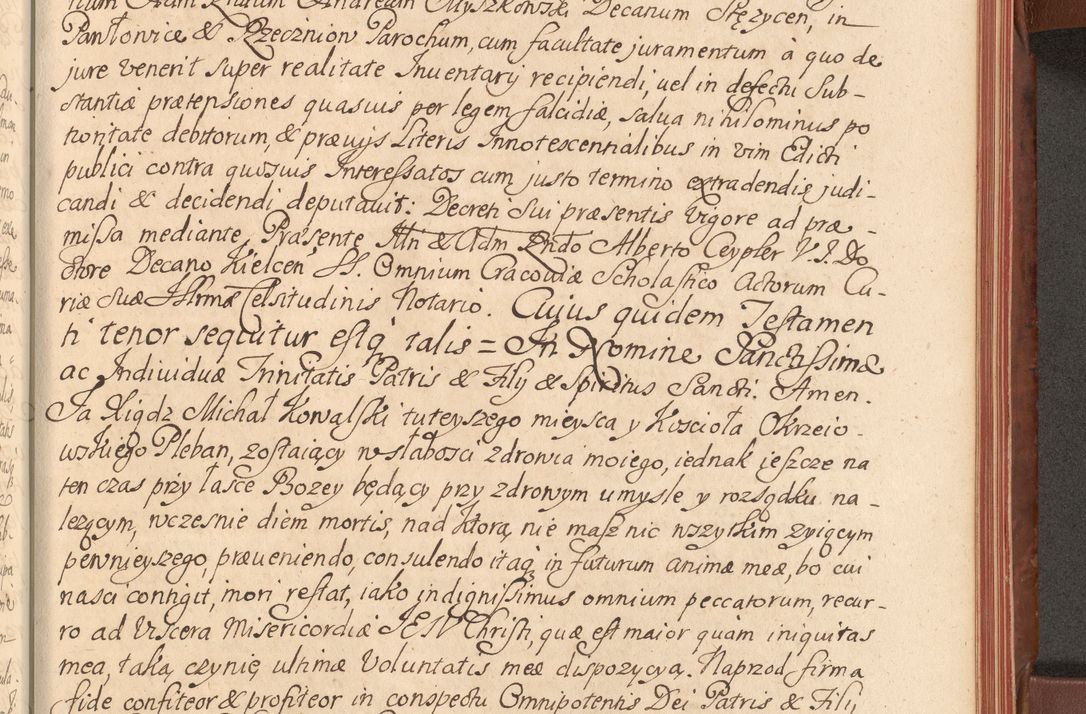 Andream Myszkowski Decanum Stężycen, in
Pawłowice & Rzecznion Parochum, cum facultate juramentum à quo de
jure venerit super realitate Inventarij recipiendi, vel in defectu Sub-
stantiæ prætensiones quasvis per legem falcidiæ, salva nihilominus po
tioritate debitorum, & prævijs Literis Innotescentialibus in vim Edicti
publici contra quosvis Interessatos cum justo termino extradendis judi-
candi & decidendi deputavit: Decreti sui præsentis vigore ad præ-
missa mediante, Præsente Illri & Adm Rndo Alberto Ceypler V. J. Do
ctore Decano Kielcen SS. Omnium Cracoviæ Scholastico Actorum Cu-
riæ suæ Illrmæ Celsitudinis Notario. Cujus quidem Testamen
ti tenor sequitur estq talis = In Nomine Sanctissimæ
ac Individuæ Trinitatis Patris & Filij & Spiritus Sancti. Amen.
Ja Xiądz Michał Kowalski tuteyszego mieysca y Kościoła Okrzeio-
wskiego Pleban, zostaiący w słabości zdrowia moiego, iednak jeszcze na
ten czas przy łasce Bożey będący przy zdrowym umyśle y rozsądku na-
leżącym, wczesnie diem mortis, nad którą nie masz nic wszytkim żyiącym
pewnieyszego, præveniendo, consulendo itaq in futurum animæ meæ, bo cui
nasci contigit, mori restat, iako indignissimus omnium peccatorum, recur-
ro ad Viscera Misericordiæ JESU Christi, quæ est maior quam iniquitas
mea, taką czynię ultimæ Voluntatis meæ dispozycyą. Naprzod firma
fide confiteor & profiteor in conspectu Omnipotentis Dei Patris & Filij